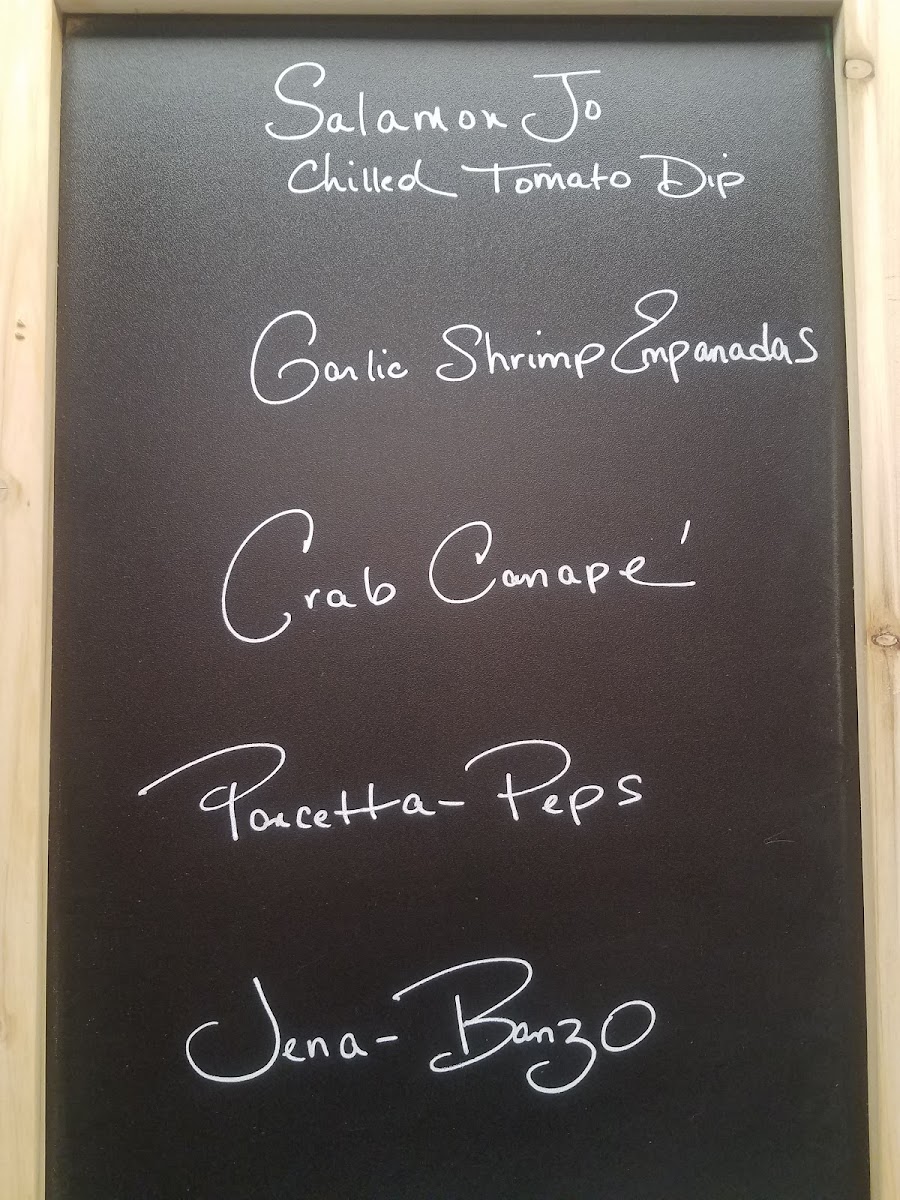 Salamon Jo
Chilled Tomato Dip
Garlic Shrimp Empanadas
Crab Canapé
Porcetta-Peps
Jena-Banzo